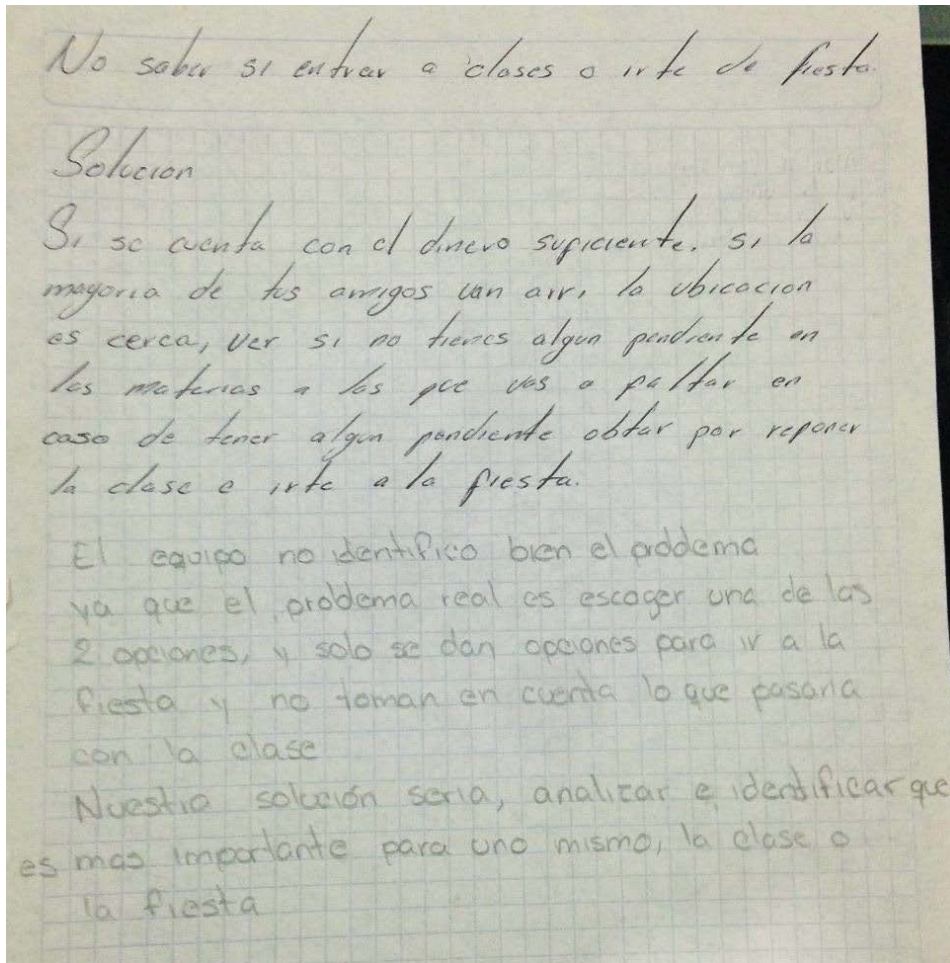 No saber si entrar a clases o irte de fiesta.
Solucion
Si se cuenta con el dinero suficiente. si la
mayoria de tus amigos van
la ubicacion
es cerca, ver si no tienes algun pendiente en
las materias a las que vas a faltar en
caso de tener algun pendiente obtar por reponer
la clase e irte a la fiesta.
El equipo no identifico bien el problema
ya que el problema real es escoger una de las
2 opciones, y solo se dan opciones para ir a la
fiesta y no toman en cuenta lo que pasaria
con la clase
Nuestra solución seria, analizar e identificar que
es mas importante para uno mismo, la clase o
la fiesta